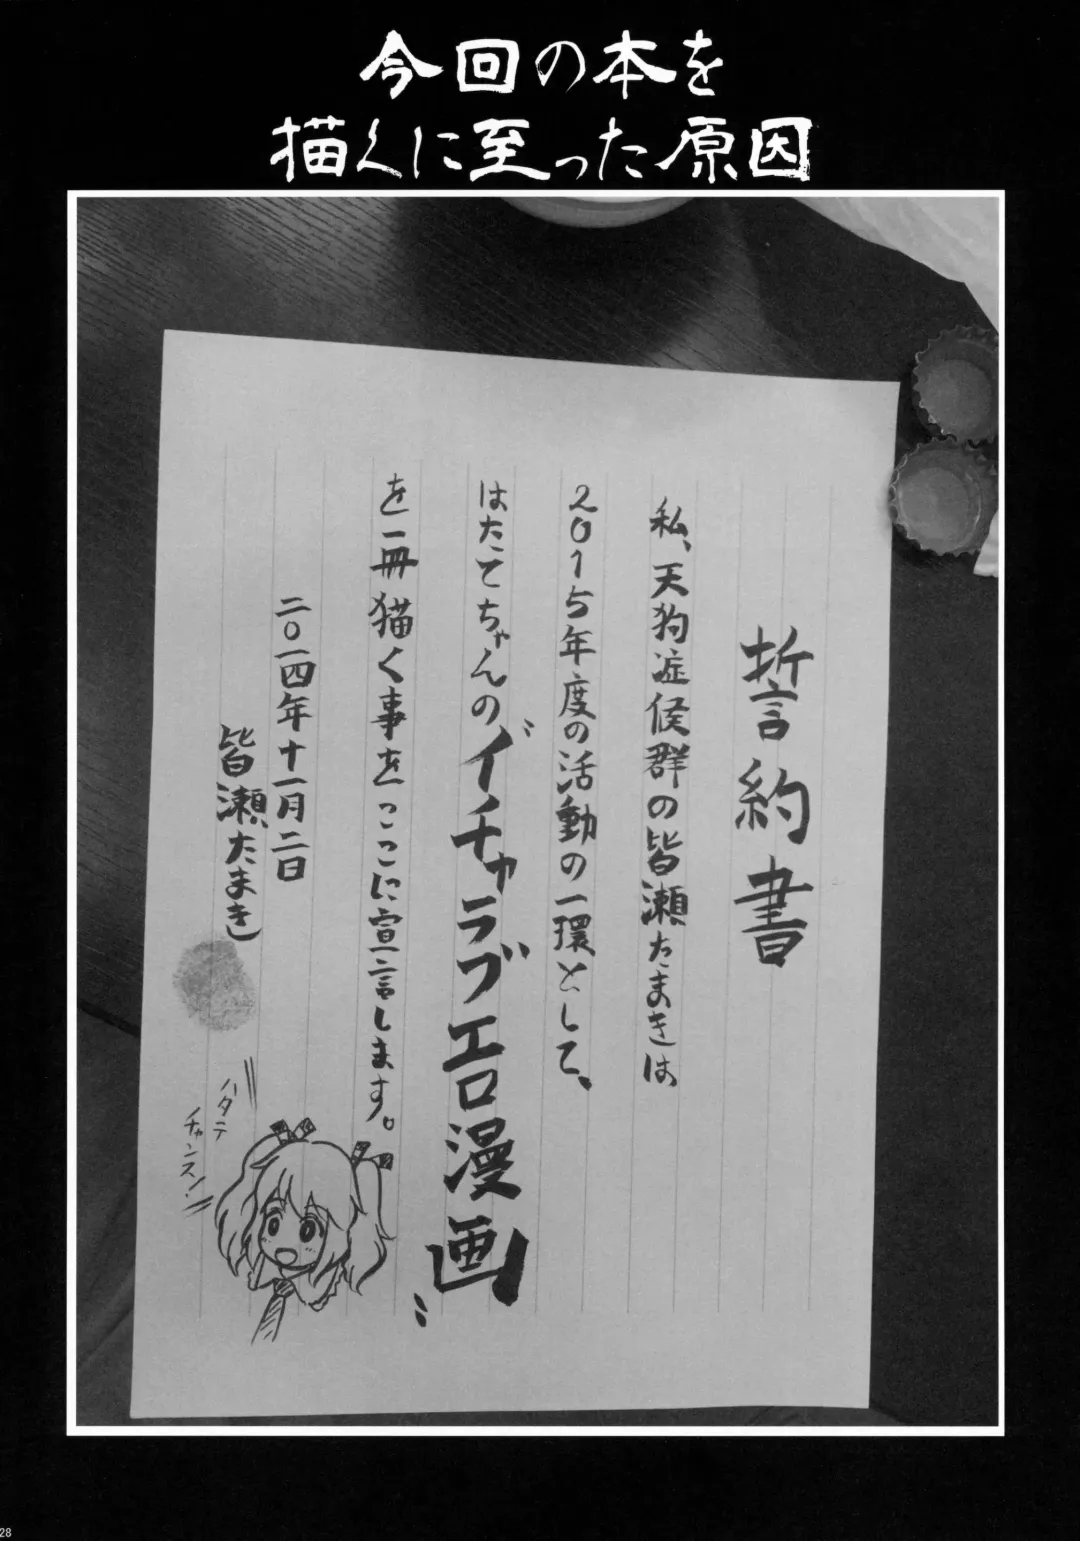 今回の本を
描くに至った原因
誓約書
私、天狗症候群の皆瀬たまきは
2015年度の活動の一環として、
はたてちゃんの〝イチャラブエロ漫画〟
を一冊猫く事をここに宣言します。
二〇一四年十一月二日
皆瀬たまき
ハタテ
チャンス!
28